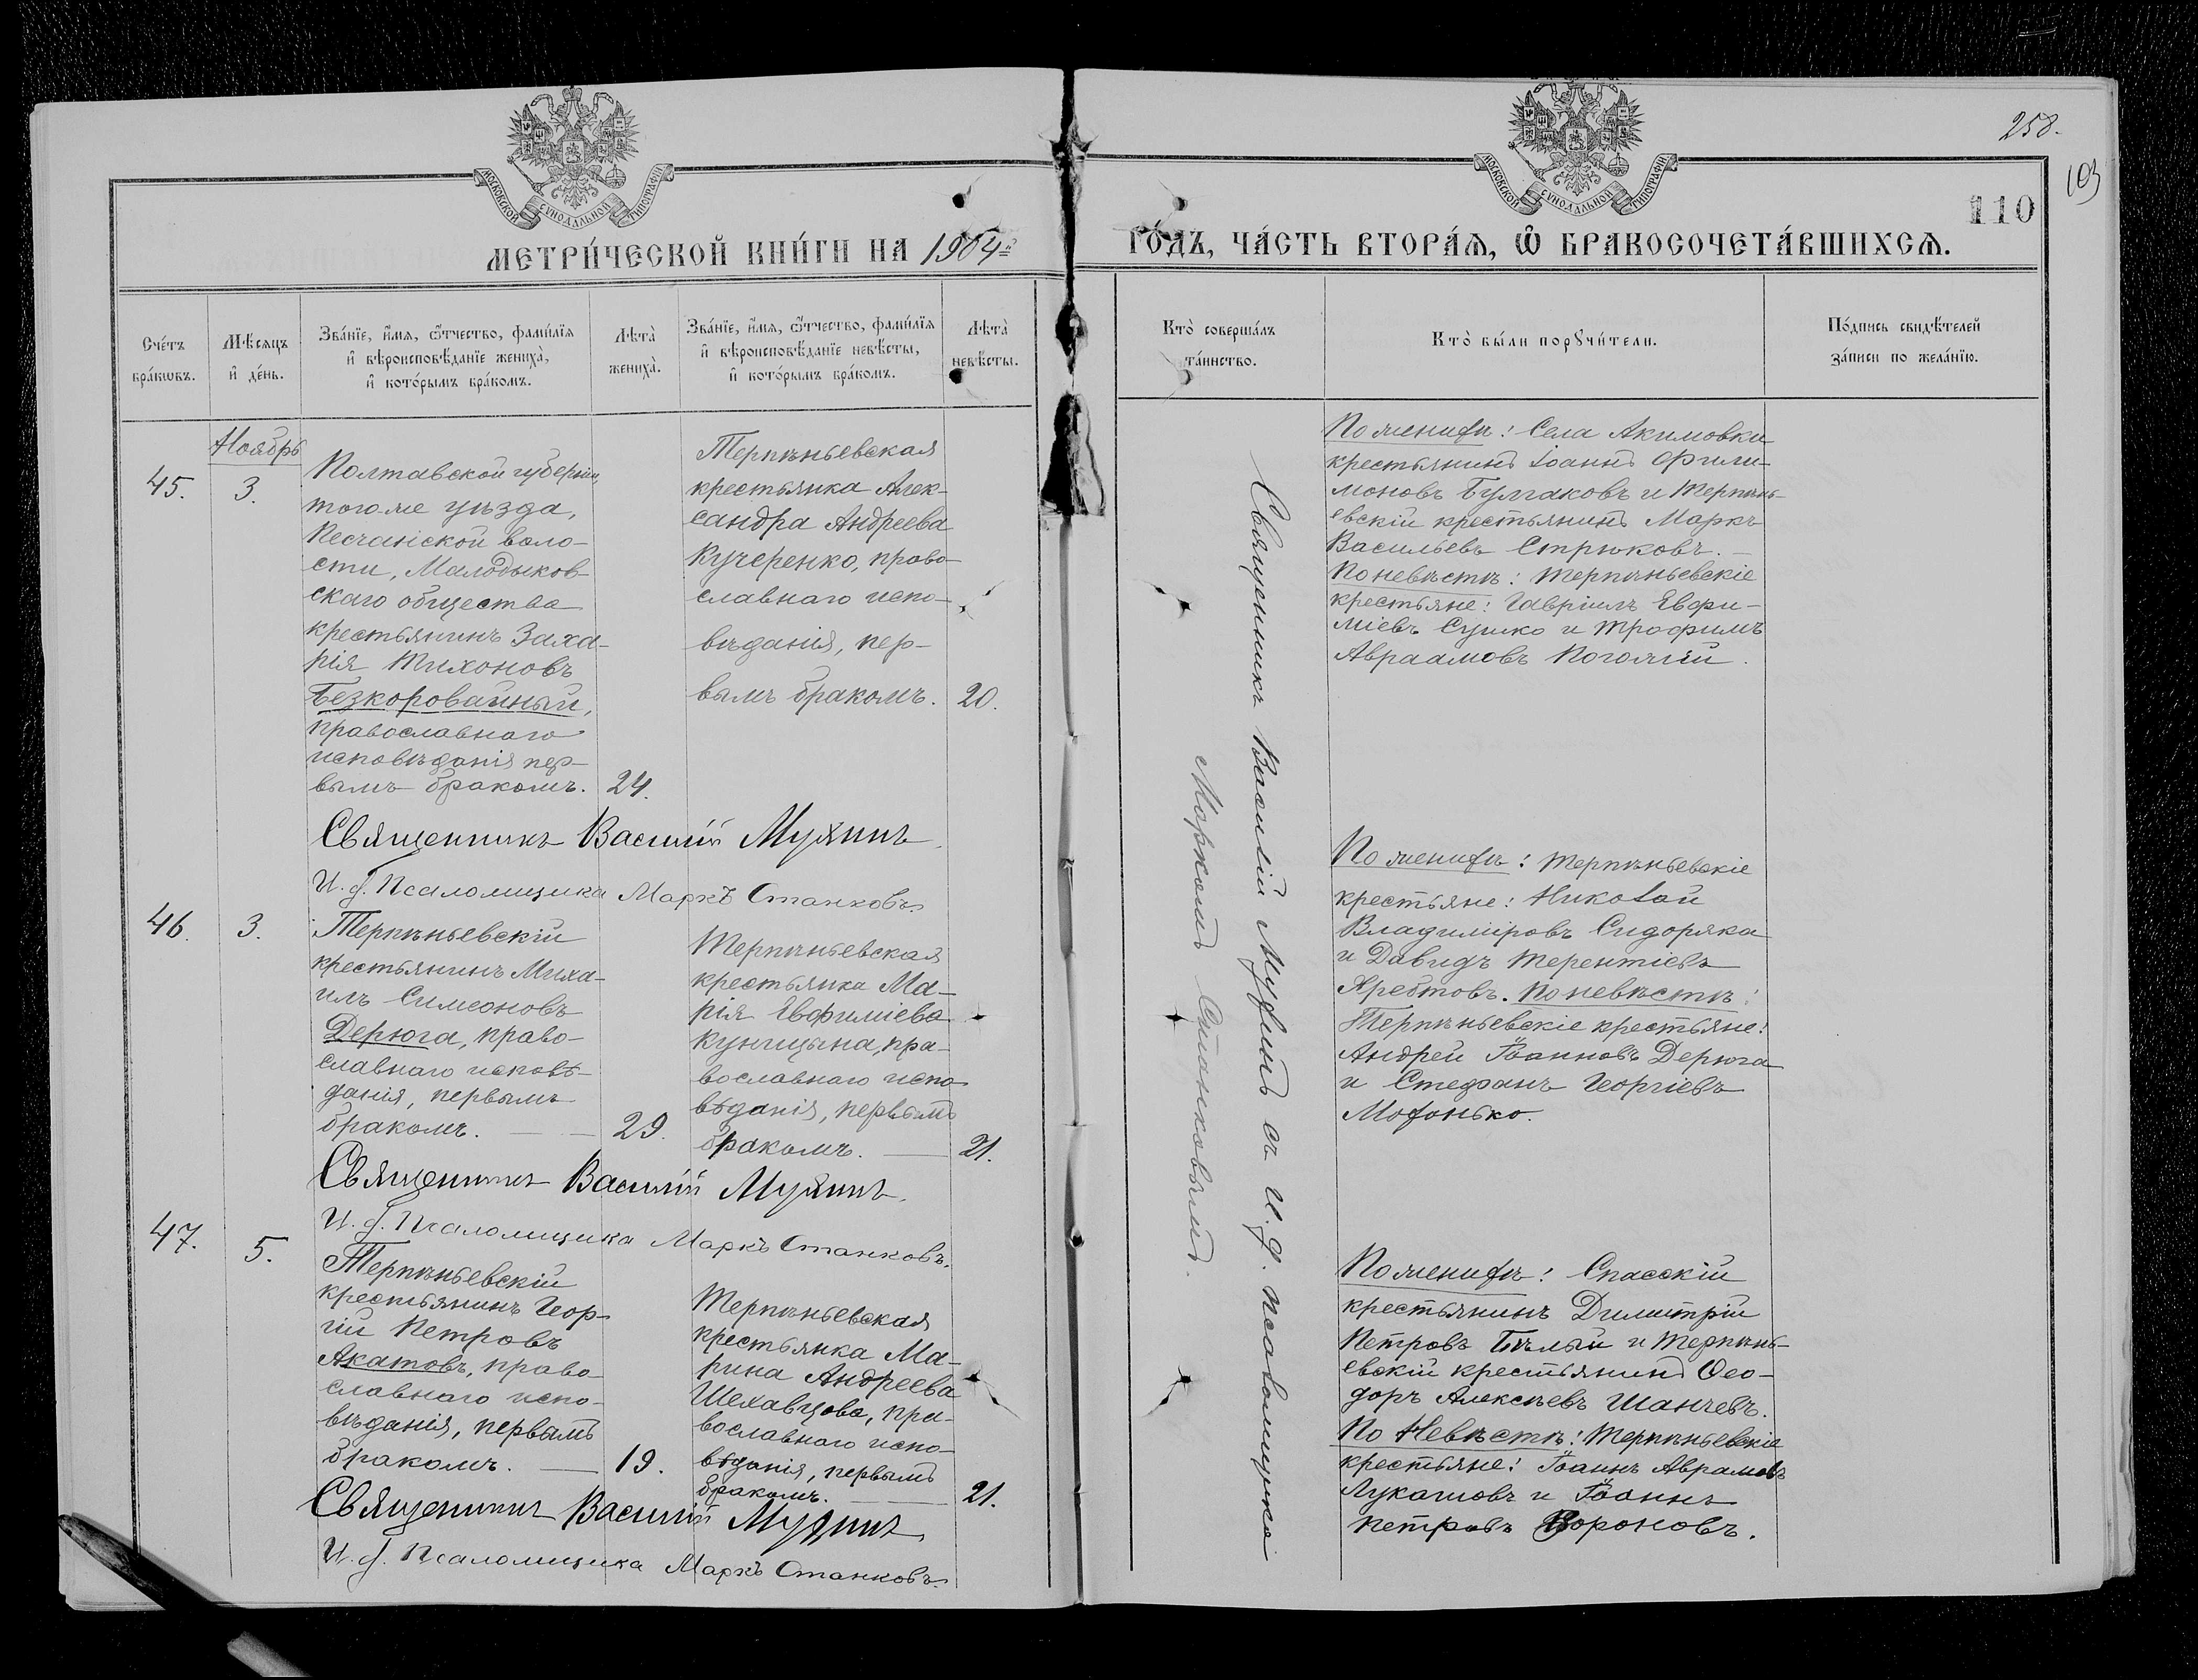 258.
103
110
МОСКОВСКОЙ СѴНОДАЛЬНОЙ ТИПОГРАФІИ
МОСКОВСКОЙ СѴНОДАЛЬНОЙ ТИПОГРАФІИ
МЕТРИ́ЧЕСКОЙ КНИ́ГИ НА 1904й
ГО́ДЪ, ЧА́СТЬ ВТОРА́Ѧ, Ѽ БРАКОСОЧЕТА́ВШИХСѦ.
Сче́тъ
бра́кѡвъ.
Мѣ́сѧцъ
и҆ де́нь.
Зва́нїе, и҆́мѧ, ѻ҆́тчество, фами́лїѧ
и҆ вѣроисповѣ́данїе жениха̀,
и҆ кото́рымъ бра́комъ.
Лѣта̀
жениха̀.
Зва́нїе, и҆́мѧ, ѻ҆́тчество, фами́лїѧ
и҆ вѣроисповѣ́данїе невѣ́сты,
и҆ кото́рымъ бра́комъ.
Лѣта̀
невѣ́сты.
Кто̀ соверша́лъ
та́инство.
Кто̀ бы́ли порꙋчи́тели.
По́дпись свидѣ́телей
за́писи по жела́нїю.
Ноябрь
45.
3.
Полтавской губерніи,
того-же уѣзда,
Песчанской воло-
сти, Малобудков-
скаго общества
крестьянинъ Заха-
рія Тихоновъ
Безкоровайный,
православнаго
исповѣданія пер-
вымъ бракомъ.
24.
Терпѣньевская
крестьянка Алек-
сандра Андреева
Кучеренко, право-
славнаго испо-
вѣданія, пер-
вымъ бракомъ.
20.
Священникъ Василій Мухинъ
И. д. Псаломщика Маркъ Станковъ.
По женихѣ: Села Акимовки
крестьянинъ Іоаннъ Фили-
моновъ Булгаковъ и Терпѣнь-
евскій крестьянинъ Маркъ
Васильевъ Стрюковъ. —
По невѣстѣ: Терпѣньевскіе
крестьяне: Гавріилъ Евфи-
міевъ Сушко и Трофимъ
Авраамовъ Погожій.
Священникъ Василій Мухинъ съ и. д. псаломщика
Маркомъ Станковымъ.
46.
3.
Терпѣньевскій
крестьянинъ Миха-
илъ Симеоновъ
Дерюга, право-
славнаго исповѣ-
данія, первымъ
бракомъ. —
29.
Терпѣньевская
крестьянка Ма-
рія Евфиміева
Куницына, пра-
вославнаго испо-
вѣданія, первымъ
бракомъ. —
21.
Священникъ Василій Мухинъ.
И. д. Псаломщика Маркъ Станковъ.
По женихѣ: Терпѣньевскіе
крестьяне: Николай
Владиміровъ Сидоряка
и Давидъ Терентіевъ
Хребтовъ. По невѣстѣ:
Терпѣньевскіе крестьяне:
Андрей Іоанновъ Дерюга
и Стефанъ Георгіевъ
Мохонько.
47.
5.
Терпѣньевскій
крестьянинъ Геор-
гій Петровъ
Акатовъ, право-
славнаго испо-
вѣданія, первымъ
бракомъ. —
19.
Терпѣньевская
крестьянка Ма-
рина Андреева
Шехавцова, пра-
вославнаго испо-
вѣданія, первымъ
бракомъ. —
21.
Священникъ Василій Мухинъ
И. д. Псаломщика Маркъ Станковъ.
По женихѣ: Спасскій
крестьянинъ Димитрій
Петровъ Бѣлый и Терпѣнь-
евскій крестьянинъ Ѳео-
доръ Алексѣевъ Шанчевъ.
По Невѣстѣ: Терпѣньевскіе
крестьяне: Іоаннъ Аврамовъ
Лукашовъ и Іоаннъ
Петровъ Вороновъ.